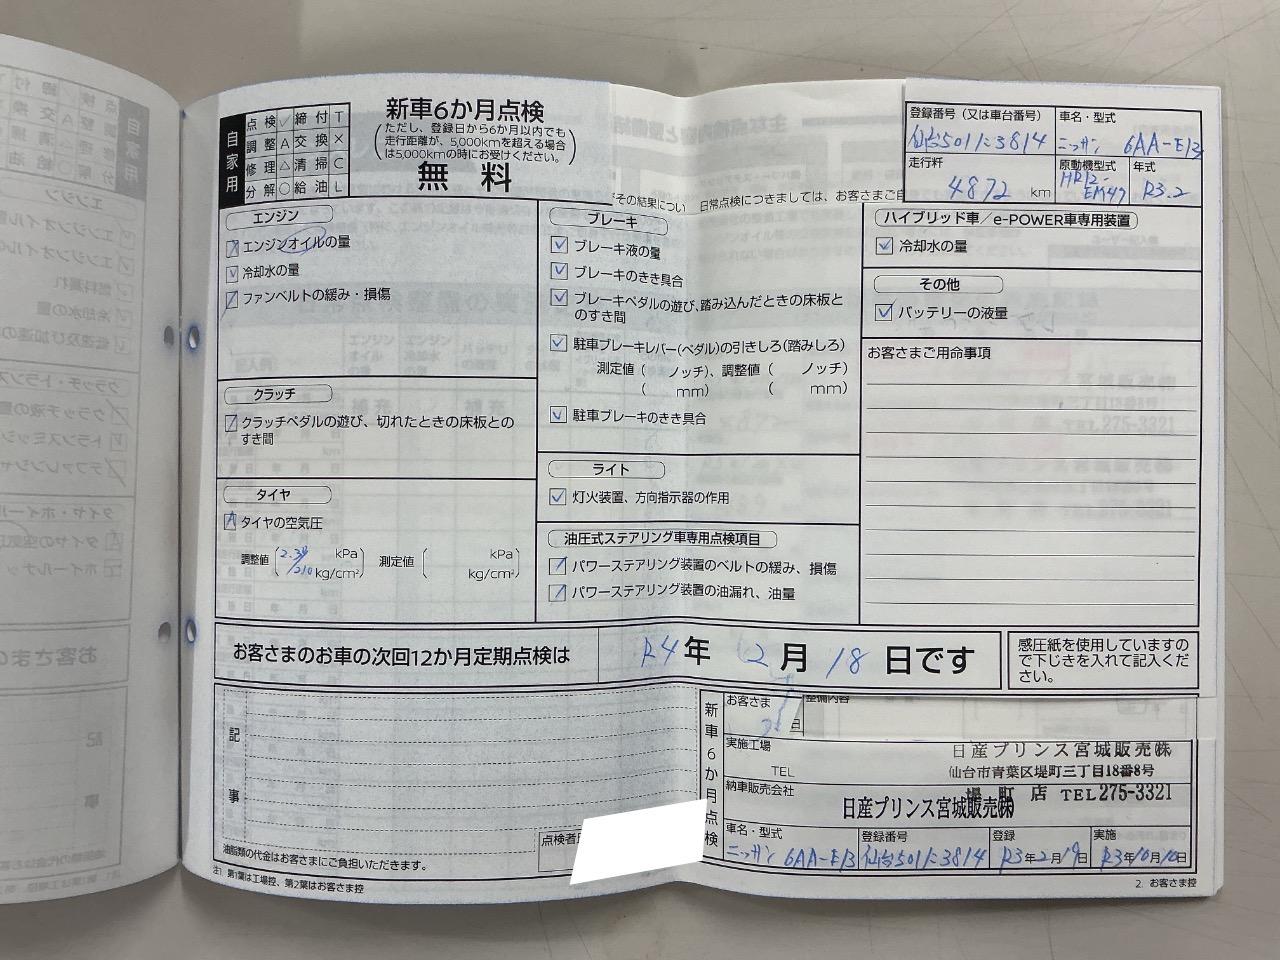 自家用
点検 ✓ 締付 T
調整 A 交換 ×
修理 △ 清掃 C
分解 ○ 給油 L
新車6か月点検
(ただし、登録日から6か月以内でも
走行距離が、5,000kmを超える場合
は5,000kmの時にお受けください。)
無料
登録番号(又は車台番号)
仙台501に3814
車名・型式
ニッサン 6AA-E13
走行粁
4872 km
原動機型式
HR12-
EM47
年式
R3.2
その結果につい
日常点検につきましては、お客さまご自
エンジン
エンジンオイルの量
冷却水の量
ファンベルトの緩み・損傷
クラッチ
クラッチペダルの遊び、切れたときの床板との
すき間
タイヤ
A タイヤの空気圧
調整値 ( 2.34 kPa
/210 kg/cm²) 測定値 ( kPa
kg/cm²)
ブレーキ
ブレーキ液の量
ブレーキのきき具合
ブレーキペダルの遊び、踏み込んだときの床板と
のすき間
駐車ブレーキレバー(ペダル)の引きしろ(踏みしろ)
測定値 ( ノッチ)、調整値 ( ノッチ)
( mm) ( mm)
駐車ブレーキのきき具合
ライト
灯火装置、方向指示器の作用
油圧式ステアリング車専用点検項目
パワーステアリング装置のベルトの緩み、損傷
パワーステアリング装置の油漏れ、油量
ハイブリッド車/e-POWER車専用装置
冷却水の量
その他
バッテリーの液量
お客さまご用命事項
お客さまのお車の次回12か月定期点検は R4年 2月 18日です
感圧紙を使用していますの
で下じきを入れて記入くだ
さい。
記事
油脂類の代金はお客さまにご負担いただきます。
点検者
新車6か月点検
お客さま
日
整備内容
実施工場
TEL
日産プリンス宮城販売㈱
仙台市青葉区堤町三丁目18番8号
堤町店 TEL275-3321
納車販売会社
日産プリンス宮城販売㈱
車名・型式
ニッサン 6AA-E13
登録番号
仙台501に3814
登録
R3年2月19日
実施
R3年10月10日
注1 第1葉は工場控、第2葉はお客さま控
2. お客さま控